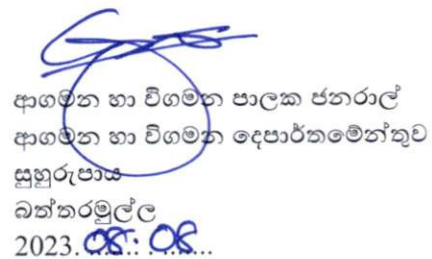 ආගමන හා විගමන පාලක ජනරාල්
ආගමන හා විගමන දෙපාර්තමේන්තුව
සුහුරුපාය
බත්තරමුල්ල
2023. 08. 08